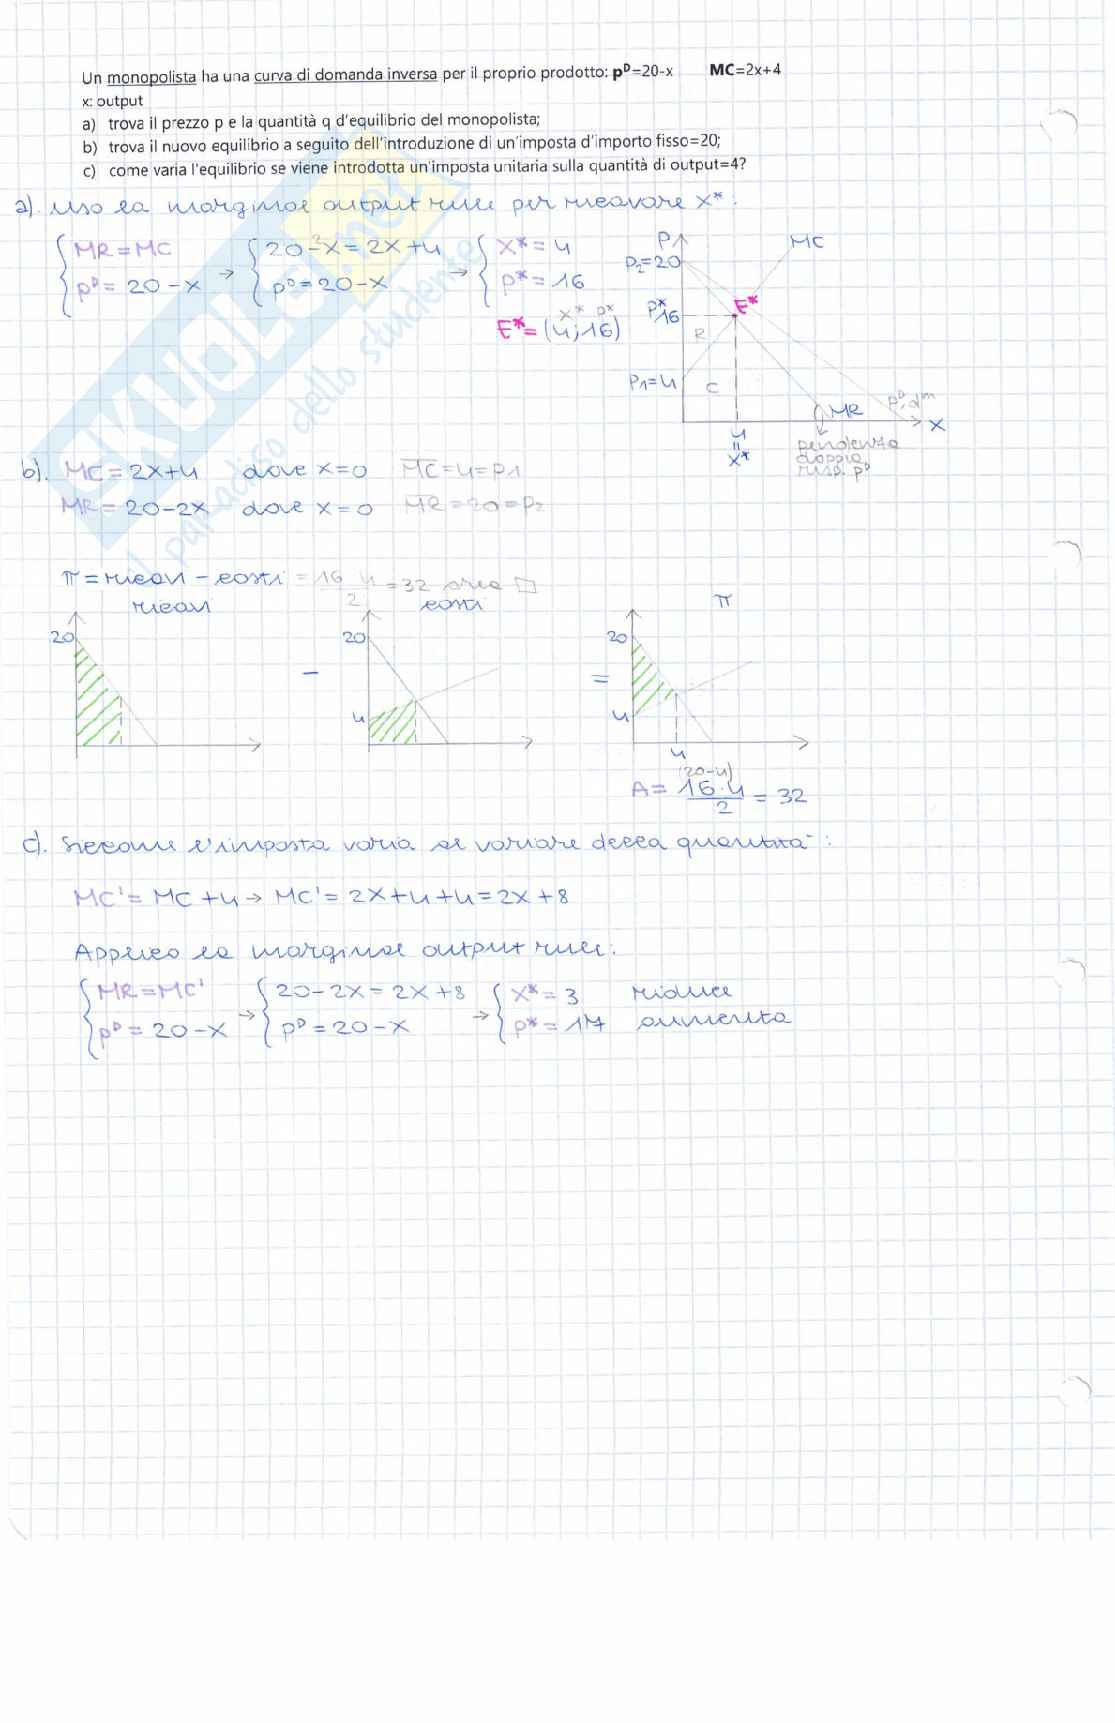 Un monopolista ha una curva di domanda inversa per il proprio prodotto: pᴰ=20-x MC=2x+4
x: output
a) trova il prezzo p e la quantità q d'equilibrio del monopolista;
b) trova il nuovo equilibrio a seguito dell'introduzione di un'imposta d'importo fisso=20;
c) come varia l'equilibrio se viene introdotta un'imposta unitaria sulla quantità di output=4?
a). uso la marginal output rule per ricavare x*:
MR = MC → 20-2x = 2x+4 → x* = 4
pᴰ = 20-x pᴰ = 20-x p* = 16
x* p*
E* = (4;16)
P
MC
P₂=20
E*
P* 16
R
P₁=4
C
MR
pᴰ, dᵐ
x
4
=
x*
pendenza
doppia
risp. pᴰ
b). MC = 2x+4 dove x=0 MC=4=P1
MR = 20-2x dove x=0 MR=20=P₂
π = ricavi - costi = 16·4/2 = 32 area
ricavi costi π
20 20 20
- =
4 4
4
(20-4)
A = 16·4/2 = 32
c). Siccome l'imposta varia al variare della quantità:
MC' = MC +4 → MC' = 2x+4+4 = 2x+8
Applico la marginal output rule:
MR = MC' → 20-2x = 2x+8 → x* = 3 riduce
pᴰ = 20-x pᴰ = 20-x p* = 17 aumenta
SKUOLA.net
il paradiso dello studente